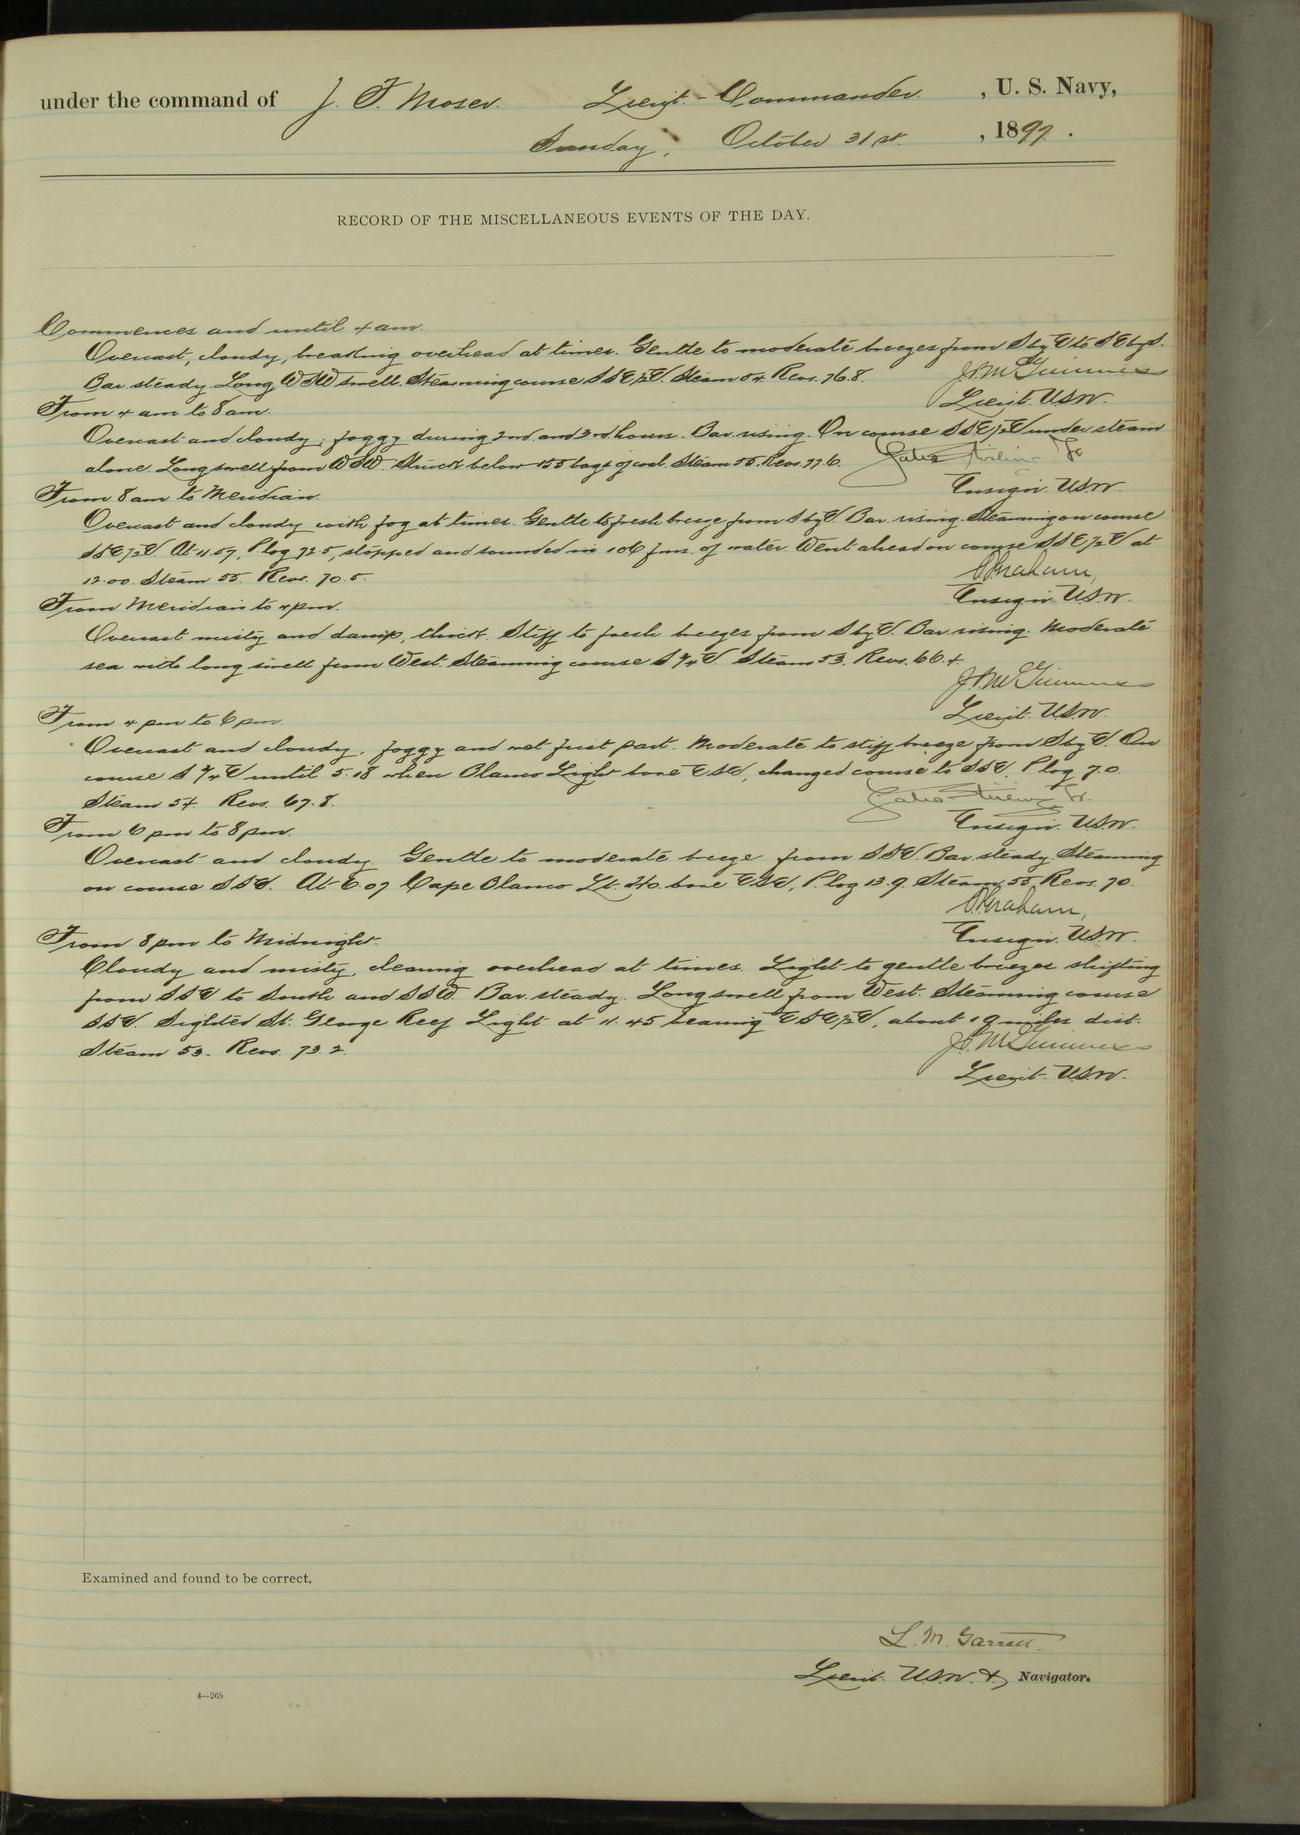 under the command of J. F. Moser. Lieut.-Commander. , U. S. Navy,
Sunday, October 31st. , 1897.
RECORD OF THE MISCELLANEOUS EVENTS OF THE DAY.
Commences and until 4 am.
Overcast, cloudy, breaking overhead at times. Gentle to moderate breezes from S by E to SE by S.
Bar. steady. Long WSW swell. Steaming course SSE½E. Steam 54. Revs. 76.8.
Lieut. USN.
From 4 am to 8 am.
Overcast and cloudy; foggy during 2nd. and 3rd hours. Bar. rising. On course SSE½E under steam
alone. Long swell from WSW. Struck below 155 bags of coal. Steam 55. Revs. 77.6.
Yates Stirling Jr
Ensign USN.
From 8 am to Meridian.
Overcast and cloudy with fog at times. Gentle to fresh breeze from S by E. Bar. rising. Steaming on course
SSE½E. At 11.57, P. log 72.5, stopped and sounded in 106 fms. of water. Went ahead on course SSE½E at
12.00. Steam 55. Revs. 70.5.
Graham,
Ensign USN.
From Meridian to 4 pm.
Overcast misty and damp, thick. Stiff to fresh breezes from S by E. Bar. rising. Moderate
sea with long swell from West. Steaming course S¾E. Steam 53. Revs. 66.4.
Lieut. USN.
From 4 pm to 6 pm.
Overcast and cloudy, foggy and wet first part. Moderate to stiff breeze from S by E. On
course S¾E until 5.18 when Blanco Light bore ESE, changed course to SSE. P log 7.0.
Steam 54. Revs. 67.8.
Yates Stirling Jr.
Ensign USN.
From 6 pm to 8 pm.
Overcast and cloudy. Gentle to moderate breeze from SSE. Bar. steady. Steaming
on course SSE. At 6.07 Cape Blanco Lt. Ho. bore ESE, P. log 13.9. Steam 55. Revs. 70.
Graham,
Ensign USN.
From 8 pm to Midnight.
Cloudy and misty, clearing overhead at times. Light to gentle breezes shifting
from SSE to South and SSW. Bar. steady. Long swell from West. Steaming course
SSE. Sighted St. George Reef Light at 11.45 bearing ESE½E, about 19 miles dist.
Steam 53. Revs. 73.2.
Lieut. USN.
Examined and found to be correct.
L. M. Garrett.
Lieut. USN. & Navigator.
4—265